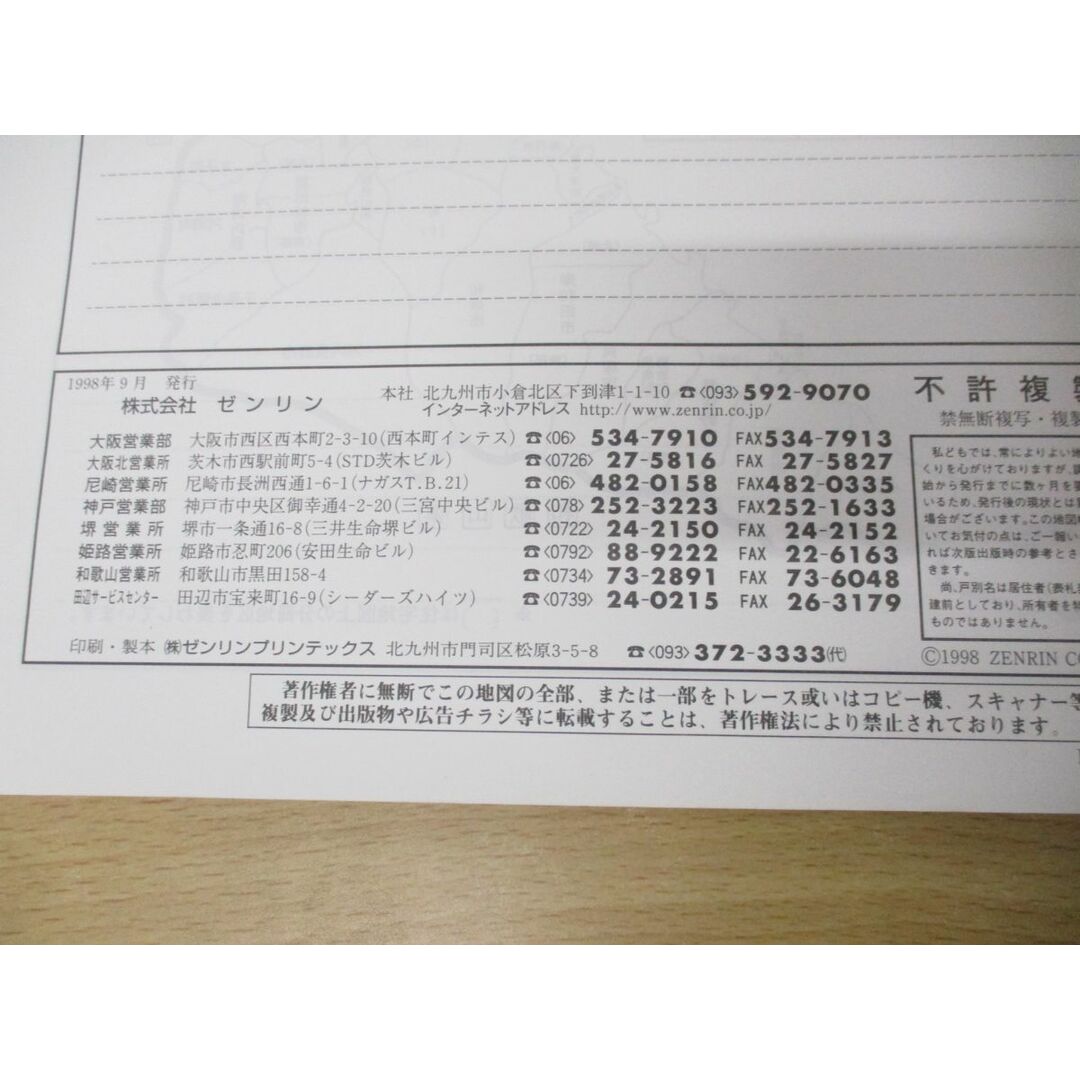 1998年9月 発行
株式会社 ゼンリン
本社 北九州市小倉北区下到津1-1-10 ☎〈093〉592-9070
インターネットアドレス http://www.zenrin.co.jp/
大阪営業部 大阪市西区西本町2-3-10(西本町インテス) ☎〈06〉534-7910 FAX534-7913
大阪北営業所 茨木市西駅前町5-4(STD茨木ビル) ☎〈0726〉27-5816 FAX 27-5827
尼崎営業所 尼崎市長洲西通1-6-1(ナガスT.B.21) ☎〈06〉482-0158 FAX482-0335
神戸営業部 神戸市中央区御幸通4-2-20(三宮中央ビル) ☎〈078〉252-3223 FAX252-1633
堺営業所 堺市一条通16-8(三井生命堺ビル) ☎〈0722〉24-2150 FAX 24-2152
姫路営業所 姫路市忍町206(安田生命ビル) ☎〈0792〉88-9222 FAX 22-6163
和歌山営業所 和歌山市黒田158-4 ☎〈0734〉73-2891 FAX 73-6048
田辺サービスセンター 田辺市宝来町16-9(シーダーズハイツ) ☎〈0739〉24-0215 FAX 26-3179
印刷・製本 ㈱ゼンリンプリンテックス 北九州市門司区松原3-5-8 ☎〈093〉372-3333㈹
不許複製
禁無断複写・複製
私どもでは、常によりよい地
くりを心がけておりますが、調
始から発行までに数ヶ月を要
いるため、発行後の現状とは
場合がございます。この地図
いてお気付の点は、ご一報い
れば次版出版時の参考とさ
きます。
尚、戸別名は居住者(表札
建前としており、所有者を特
ものではありません。
©1998 ZENRIN CO
著作権者に無断でこの地図の全部、または一部をトレース或いはコピー機、スキャナー等
複製及び出版物や広告チラシ等に転載することは、著作権法により禁止されております。